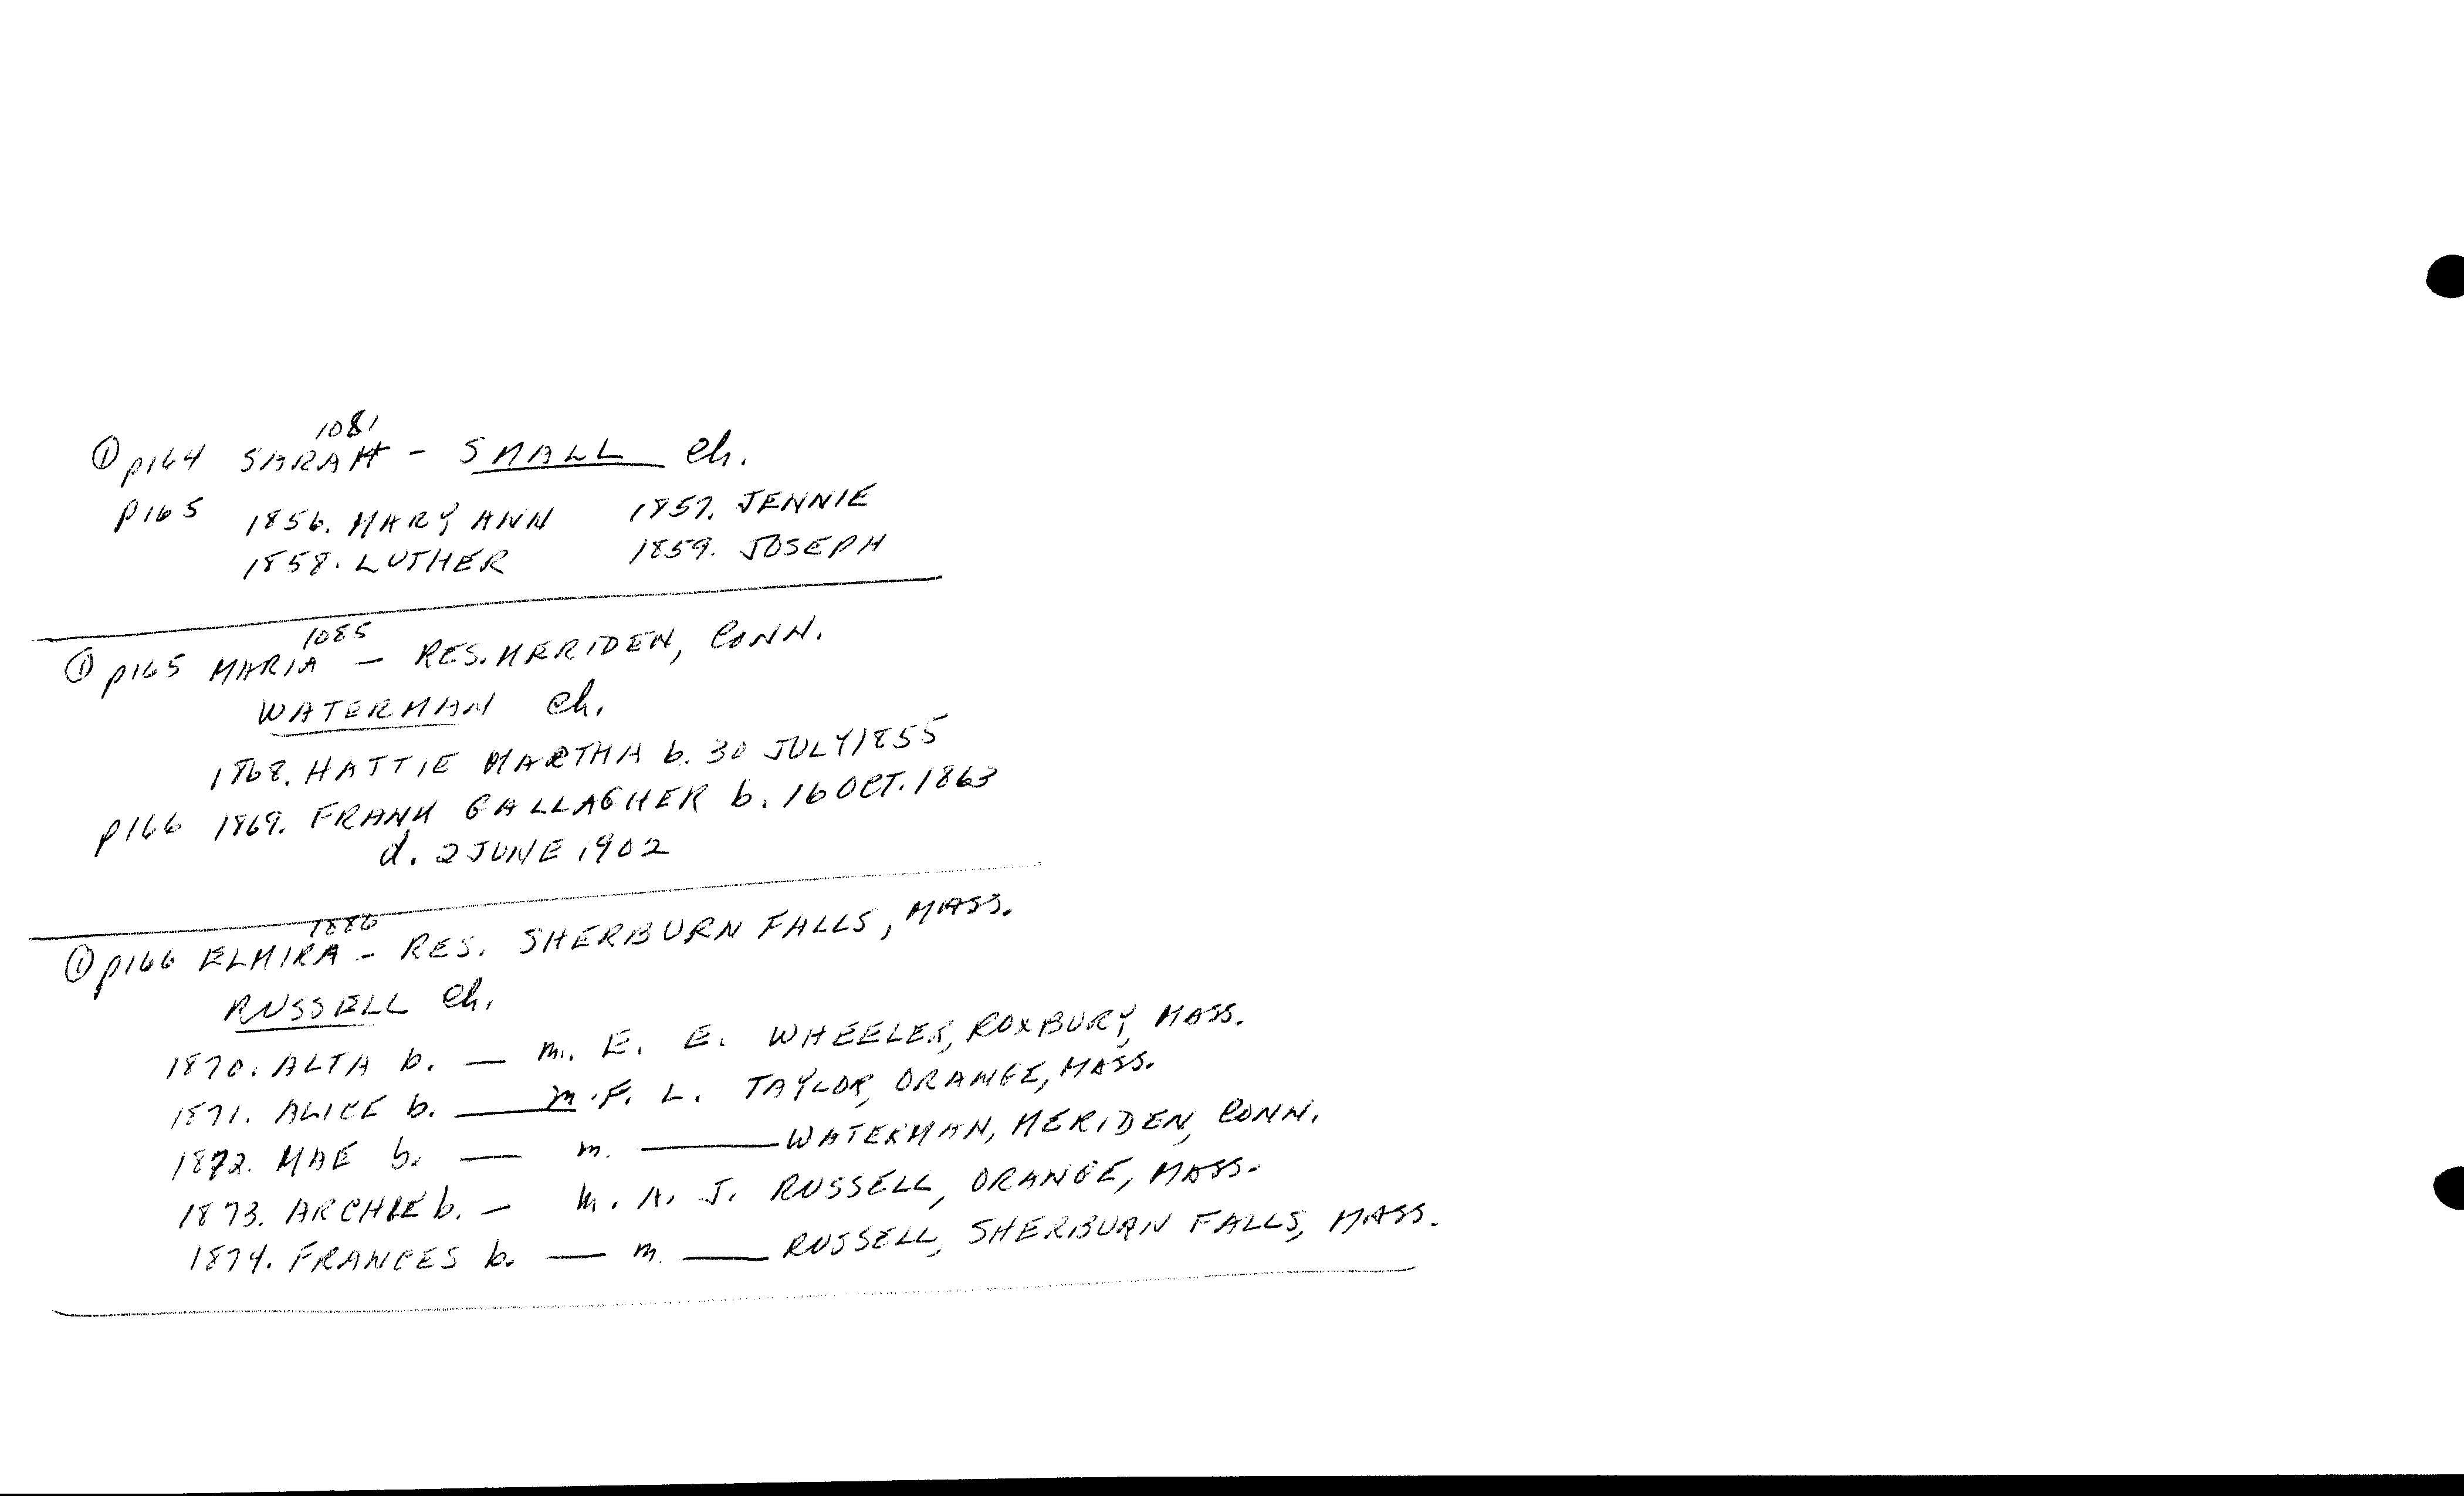 ① p164 SARAH 1081 - SMALL ch.
p165 1856. MARY ANN 1857. JENNIE
1858. LUTHER 1859. JOSEPH
① p165 MARIA 1085 — RES. MERIDEN, CONN.
WATERMAN ch.
1868. HATTIE MARTHA b. 30 JULY 1855
p166 1869. FRANK GALLAGHER b. 16 OCT. 1863
d. 2 JUNE 1902
① p166 ELMIRA 1886 - RES. SHERBURN FALLS, MASS.
RUSSELL ch.
1870. ALTA b. — m. E. E. WHEELER, ROXBURY, MASS.
1871. ALICE b. — m. F. L. TAYLOR, ORANGE, MASS.
1872. MAE b. — m. — WATERMAN, MERIDEN, CONN.
1873. ARCHIE b. — m. A. J. RUSSELL, ORANGE, MASS.
1874. FRANCES b. — m. — RUSSELL, SHERBURN FALLS, MASS.